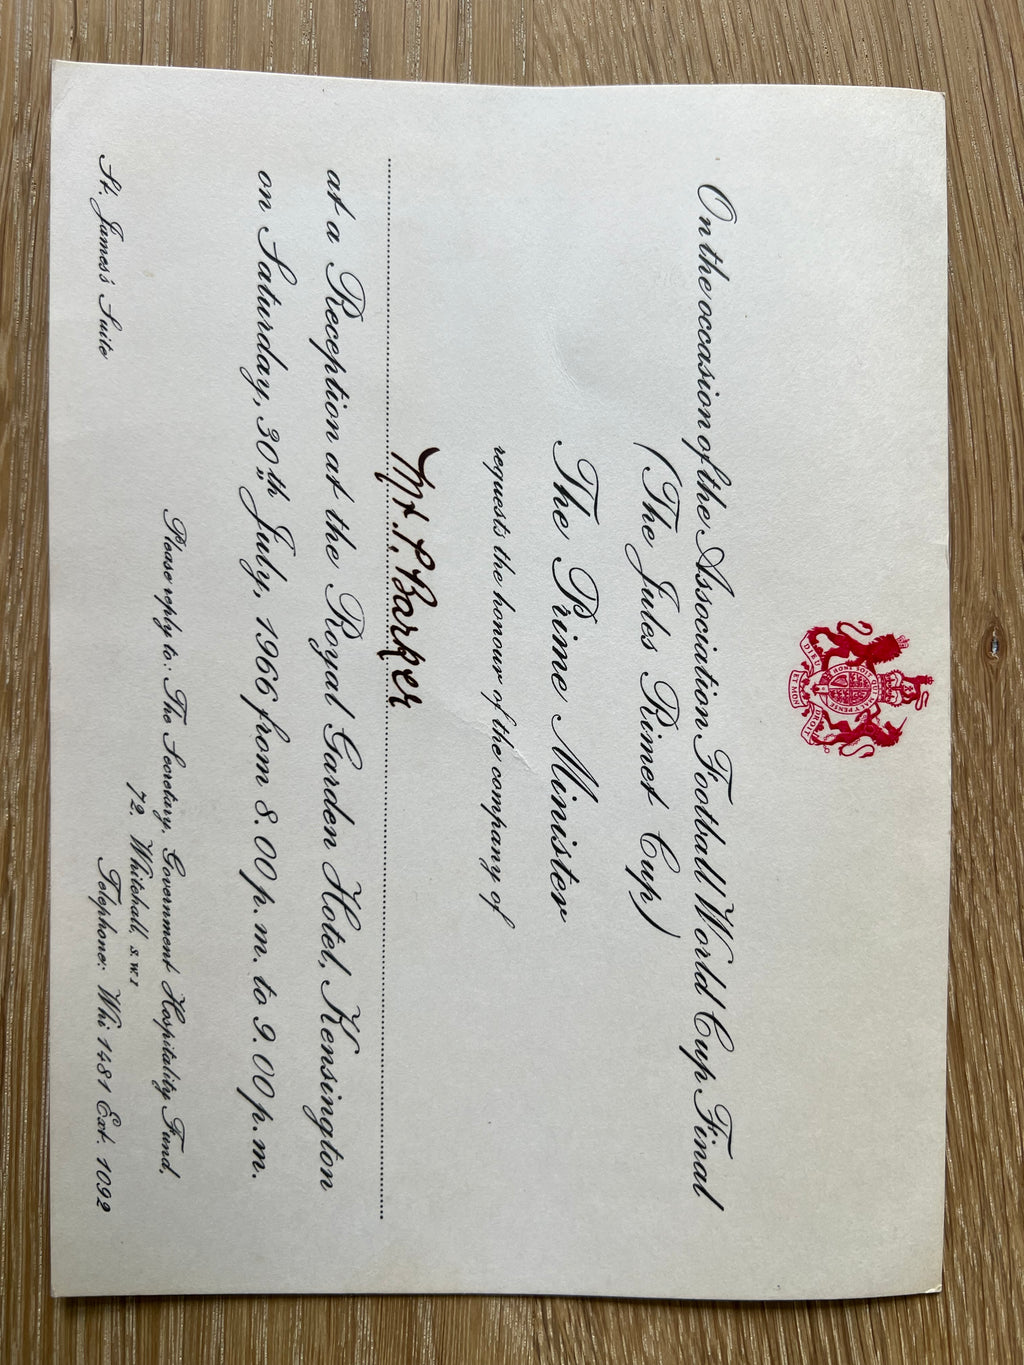 HONI SOIT QUI MAL Y PENSE
DIEU ET MON DROIT
On the occasion of the Association Football World Cup Final
(The Jules Rimet Cup)
The Prime Minister
requests the honour of the company of
Mr. P. Barker
at a Reception at the Royal Garden Hotel, Kensington
on Saturday, 30th July, 1966 from 8.00 p.m. to 9.00 p.m.
Please reply to: The Secretary, Government Hospitality Fund,
72, Whitehall, S.W.1
St. James's Suite Telephone: Whi 1481 Ext. 1092